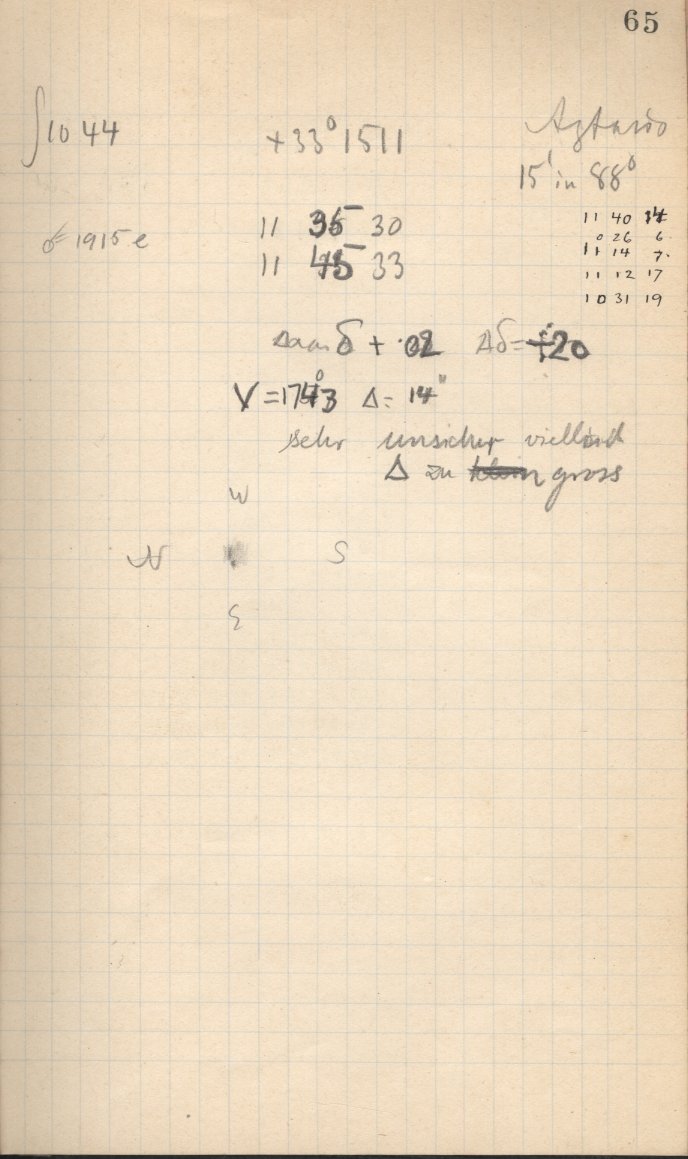 65
∫10 44 +33° 1511
15' in 88°
♂ 1915 e 11 35 30
11 45 33
11 40 14
0 26 6
11 14 7
11 12 17
10 31 19
δ + 02 Δδ= +20
V = 174°3 Δ= 14"
sehr unsicher vielleicht
Δ zu klein gross
W
N S
E